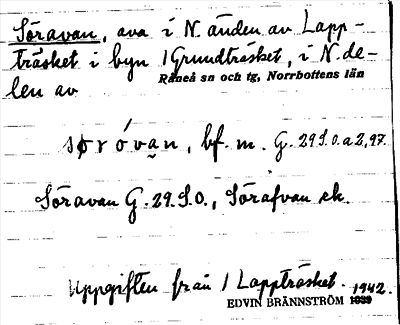 Söravan, ava i N. änden av Lapp-
träsket i byn 1 Grundträsket, i N. de-
len av
Råneå sn och tg, Norrbottens län
søróvan, bf. m. G. 29 S.O. a 2, 97.
Söravan G. 29. S.O., Sörafvan ek.
Uppgiften från 1 Lappträsket. 1942.
EDVIN BRÄNNSTRÖM 1939